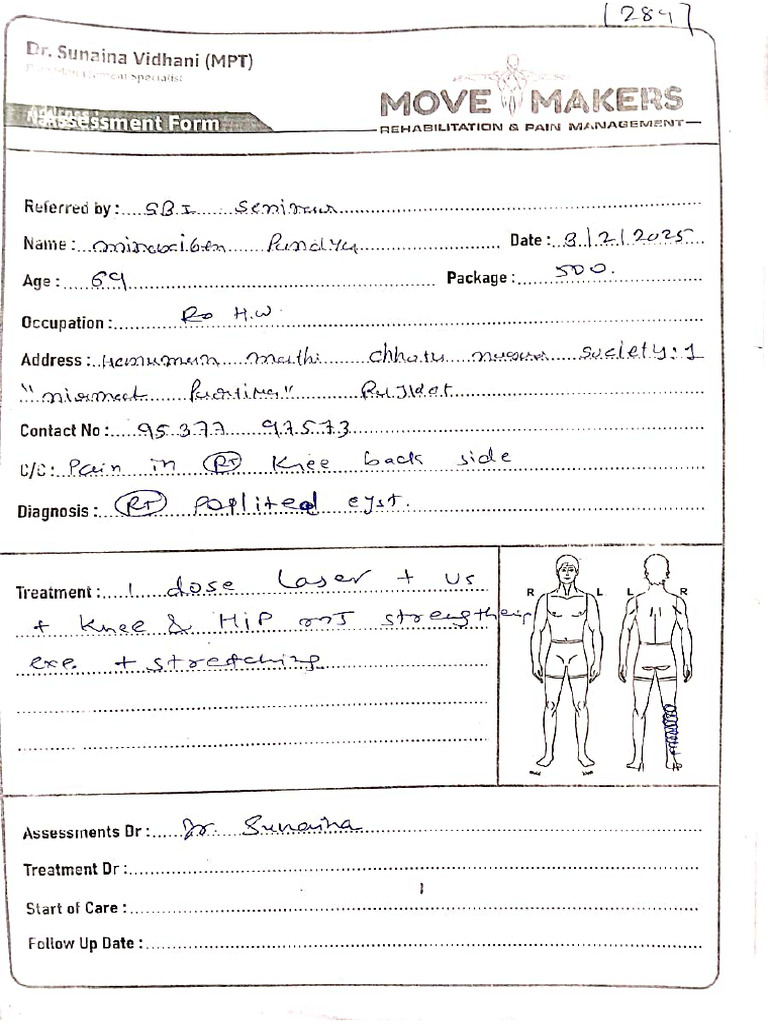 [284]
Dr. Sunaina Vidhani (MPT)
Pain Management Specialist
Assessment Form
MOVE MAKERS
REHABILITATION & PAIN MANAGEMENT
Referred by : SBI
Name : Pandya Date : 8/2/2025
Age : 69 Package : 500.
Occupation : H.W.
Address : Hanuman madhi society:1
Contact No : 95377 97573
C/C : Pain in RT Knee back side
Diagnosis : RT popliteal cyst.
Treatment : 1 dose Laser + US
+ Knee & HiP strengthening
exe. + stretching
R L L R
Assessments Dr : Dr. Sunaina
Treatment Dr :
Start of Care :
Follow Up Date :